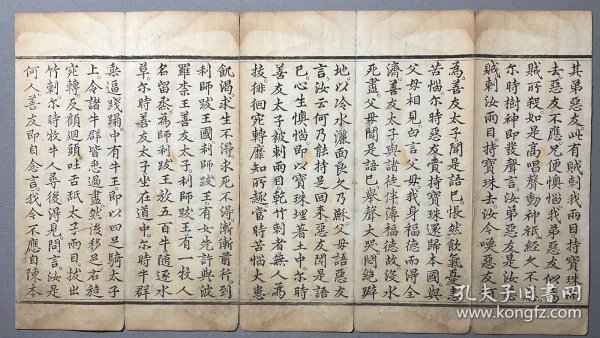 其弟惡友此有賊刺我兩目持寶珠而
去惡友不應兄便懊惱我弟惡友似為
賊所殺如是高唱聲動神祇經久不應
尔時樹神即發聲言汝弟惡友是汝惡
賊刺汝兩目持寶珠去汝今喚惡友何
為善友太子聞是語已悵然飲氣憂恚
苦惱尔時惡友賫持寶珠還歸本國與
父母相見白言父母我身福德而得全
濟善友太子與諸徒伴薄福德故沒水
死盡父母聞是語已舉聲大哭悶絕躃
地以冷水灑面良久乃穌父母語惡友
言汝云何乃能持是回来惡友聞是語
已心生懊惱即以寶珠埋著土中尔時
善友太子被刺兩目乾竹刺者無人為
拔徘徊宛轉靡知所趣當時苦惱大患
飢渴求生不得求死不得漸漸前行到
利師跋王國利師跋王有女先許與波
羅柰王善友太子利師跋王有一牧人
名留承為師利跋王放五百牛隨逐水
草尔時善友太子坐在道中尔時牛群
垂逼踐蹋中有牛王即以四足騎太子
上令諸牛群皆悉過盡然後移足右旋
宛轉反顧迴頭吐舌舐太子兩目拔出
竹刺尔時牧牛人尋後得見問言汝是
何人善友即自念言我今不應自陳本
孔夫子旧书网
www.kongfz.com